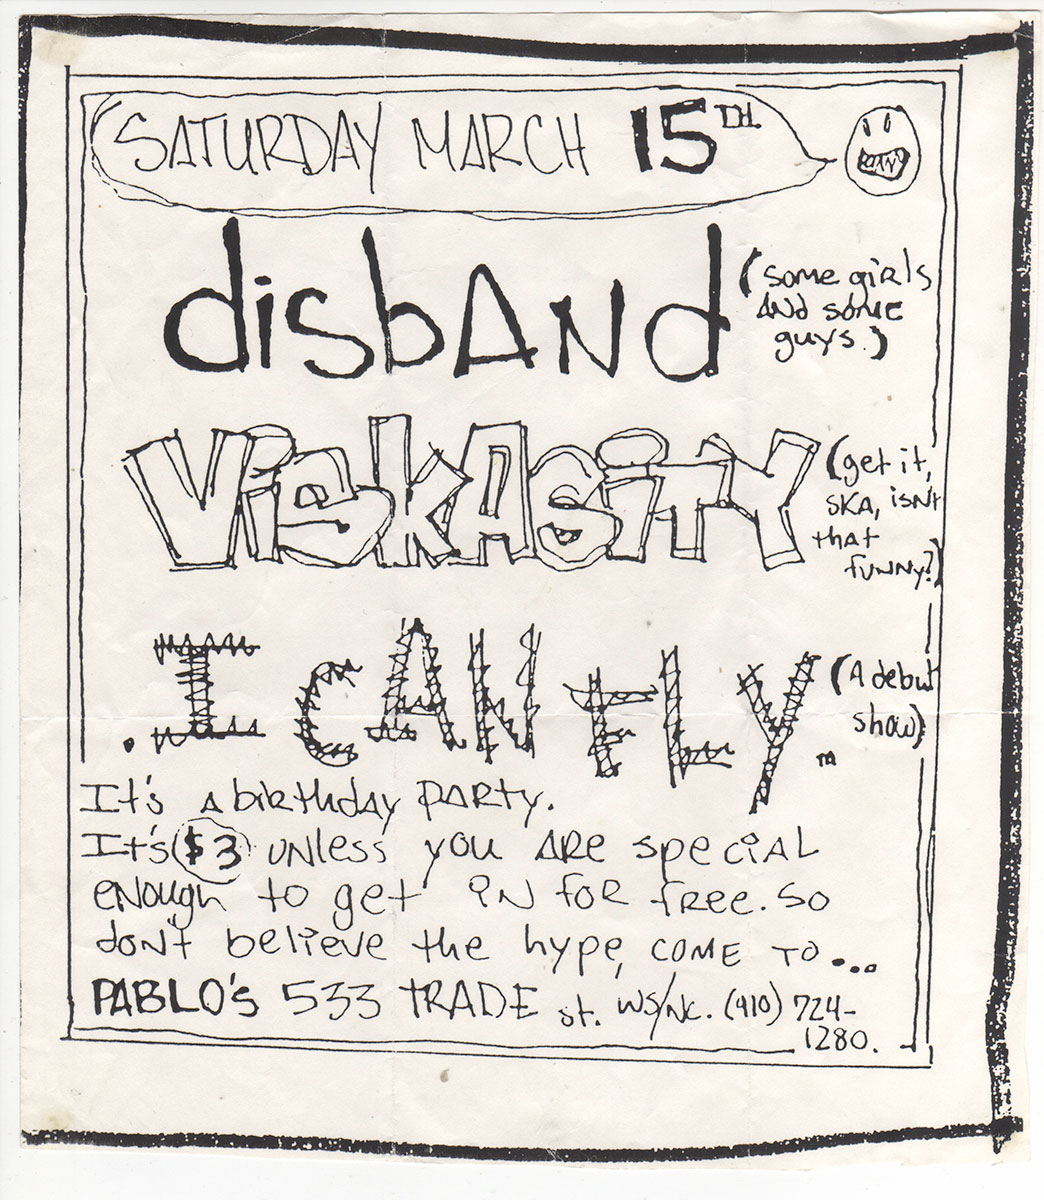 SATURDAY MARCH 15TH.
disbAnd
(some girls
ANd some
guys.)
ViSkASiTY
(get it,
SKA, isn't
that
funny?)
.I CAN FLY.
(A debut
show)
It's A birthday PARTY.
It's $3 UNless you ARe speciAL
eNough to get iN foR free. So
don't believe the hype, COME TO...
PABLO's 533 TRADE st. WS/NC. (910) 724-
1280.